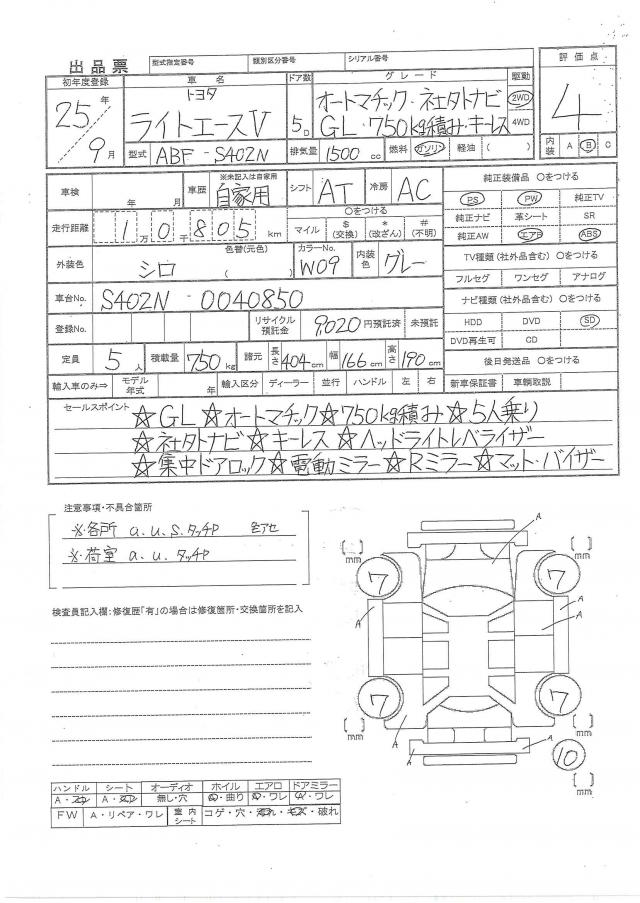 出品票 型式指定番号 類別区分番号 シリアル番号
評価点
4
内装 A B C
初年度登録 車名 ドア数 グレード 駆動
25年 9月
トヨタ
ライトエースV 5D
オートマチック・社外ナビ 2WD
GL・750kg積み・キーレス 4WD
型式 ABF-S402N 排気量 1500cc 燃料 ガソリン 軽油 ( )
車検 年 月 車歴 ※未記入は自家用 自家用 シフト AT 冷房 AC
走行距離 1万0千805km
○をつける
マイル $(交換) *(改ざん) #(不明)
外装色 シロ 色替(元色) ( ) カラーNo. W09 内装色 グレー
車台No. S402N-0040850
登録No. リサイクル預託金 9,020円預託済 未預託
定員 5人 積載量 750kg 諸元 長さ 404cm 幅 166cm 高さ 190cm
輸入車のみ⇒ モデル年式 年 輸入区分 ディーラー 並行 ハンドル 左 右
純正装備品 ○をつける
PS PW 純正TV
純正ナビ 革シート SR
純正AW エアB ABS
TV種類(社外品含む) ○をつける
フルセグ ワンセグ アナログ
ナビ種類(社外品含む) ○をつける
HDD DVD SD
DVD再生可 CD
後日発送品 ○をつける
新車保証書 車輌取説
セールスポイント
☆GL☆オートマチック☆750kg積み☆5人乗り
☆社外ナビ☆キーレス☆ヘッドライトレベライザー
☆集中ドアロック☆電動ミラー☆Rミラー☆マット・バイザー
注意事項・不具合箇所
※各所 a.u.s.タッチP 色アセ
※荷室 a.u.タッチP
検査員記入欄:修復歴「有」の場合は修復箇所・交換箇所を記入
A
[ ] mm [ ] mm
7 7
A A A
7 7
A A A
[ ] mm [ ] mm
10
[ ] mm
ハンドル シート オーディオ ホイル エアロ ドアミラー
A・スレ A・スレ 無し・穴 キズ・曲り キズ・ワレ キズ・ワレ
FW A・リペア・ワレ 室内シート コゲ・穴・汚れ・キズ・破れ